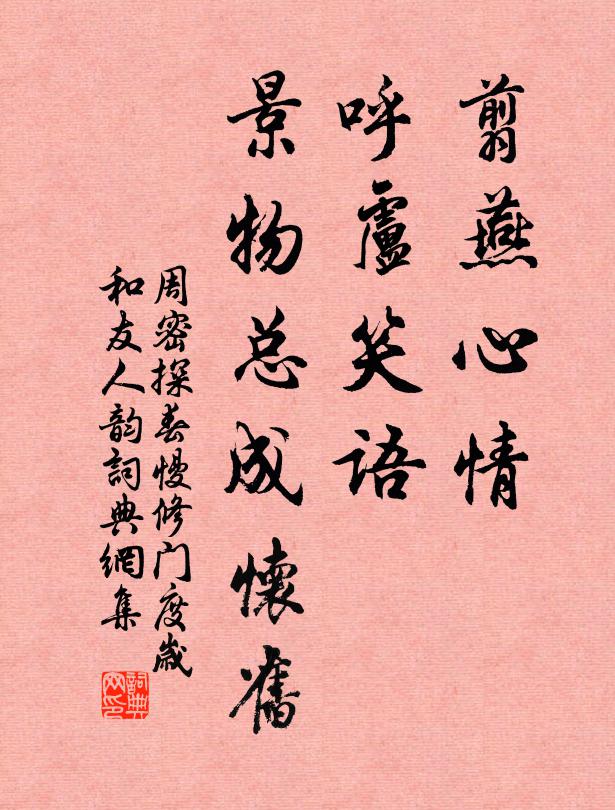 翦燕心情
呼盧笑语
景物总成懷舊
周密探春慢修门度歲
和友人韵詞典網集
詞典
网印